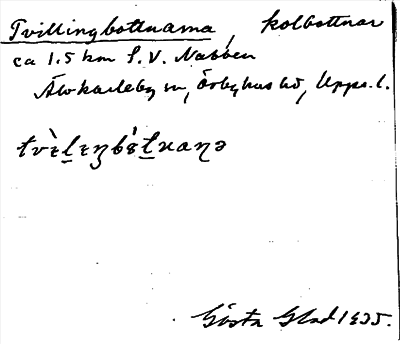 Tvillingbottnarna, kolbottnar
ca 1.5 km S.V. Nabben
Älvkarleby sn, Örbyhus hd, Upps. l.
tvὲlεŋbɛ́tnaɳə
Gösta Glad 1935.